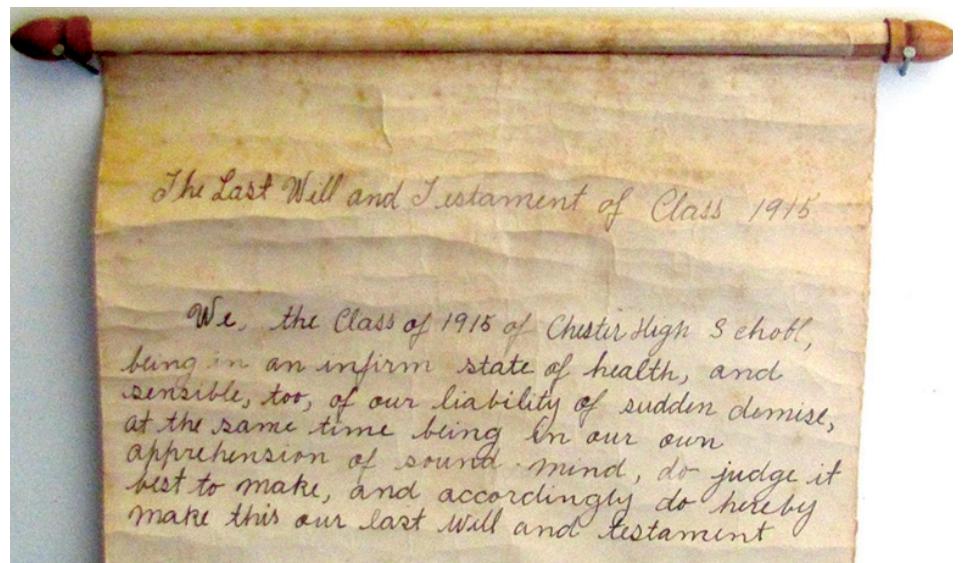 The Last Will and Testament of Class 1915
We, the Class of 1915 of Chester High School,
being in an infirm state of health, and
sensible, too, of our liability of sudden demise,
at the same time being in our own
apprehension of sound mind, do judge it
best to make, and accordingly do hereby
make this our last Will and testament